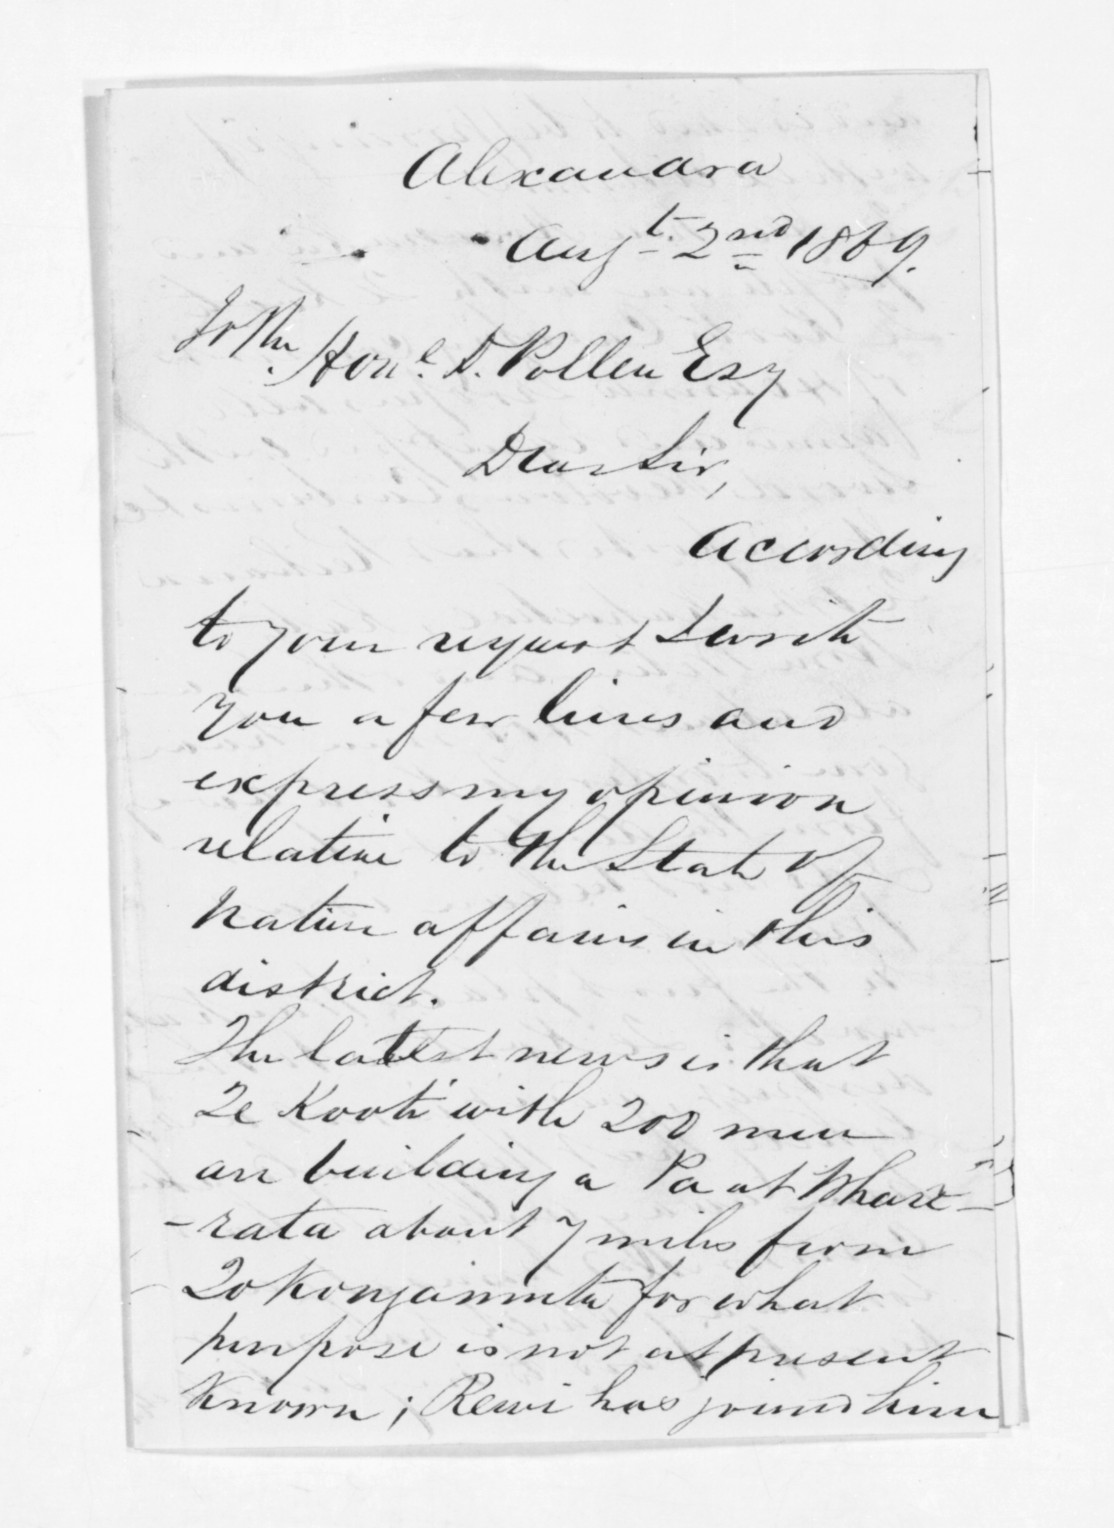 Alexandra
Augt. 2nd 1869.
To the
Honl. D. Pollen Esq
Dear Sir,
According
to your request I write
you a few lines and
express my opinion
relative to the State of
Native affairs in this
district.
The latest news is that
Te Kooti with 200 men
are building a Pa at Whare-
-rata about 7 miles from
Tokangamutu for what
purpose is not at present
known; Rewi has joined him